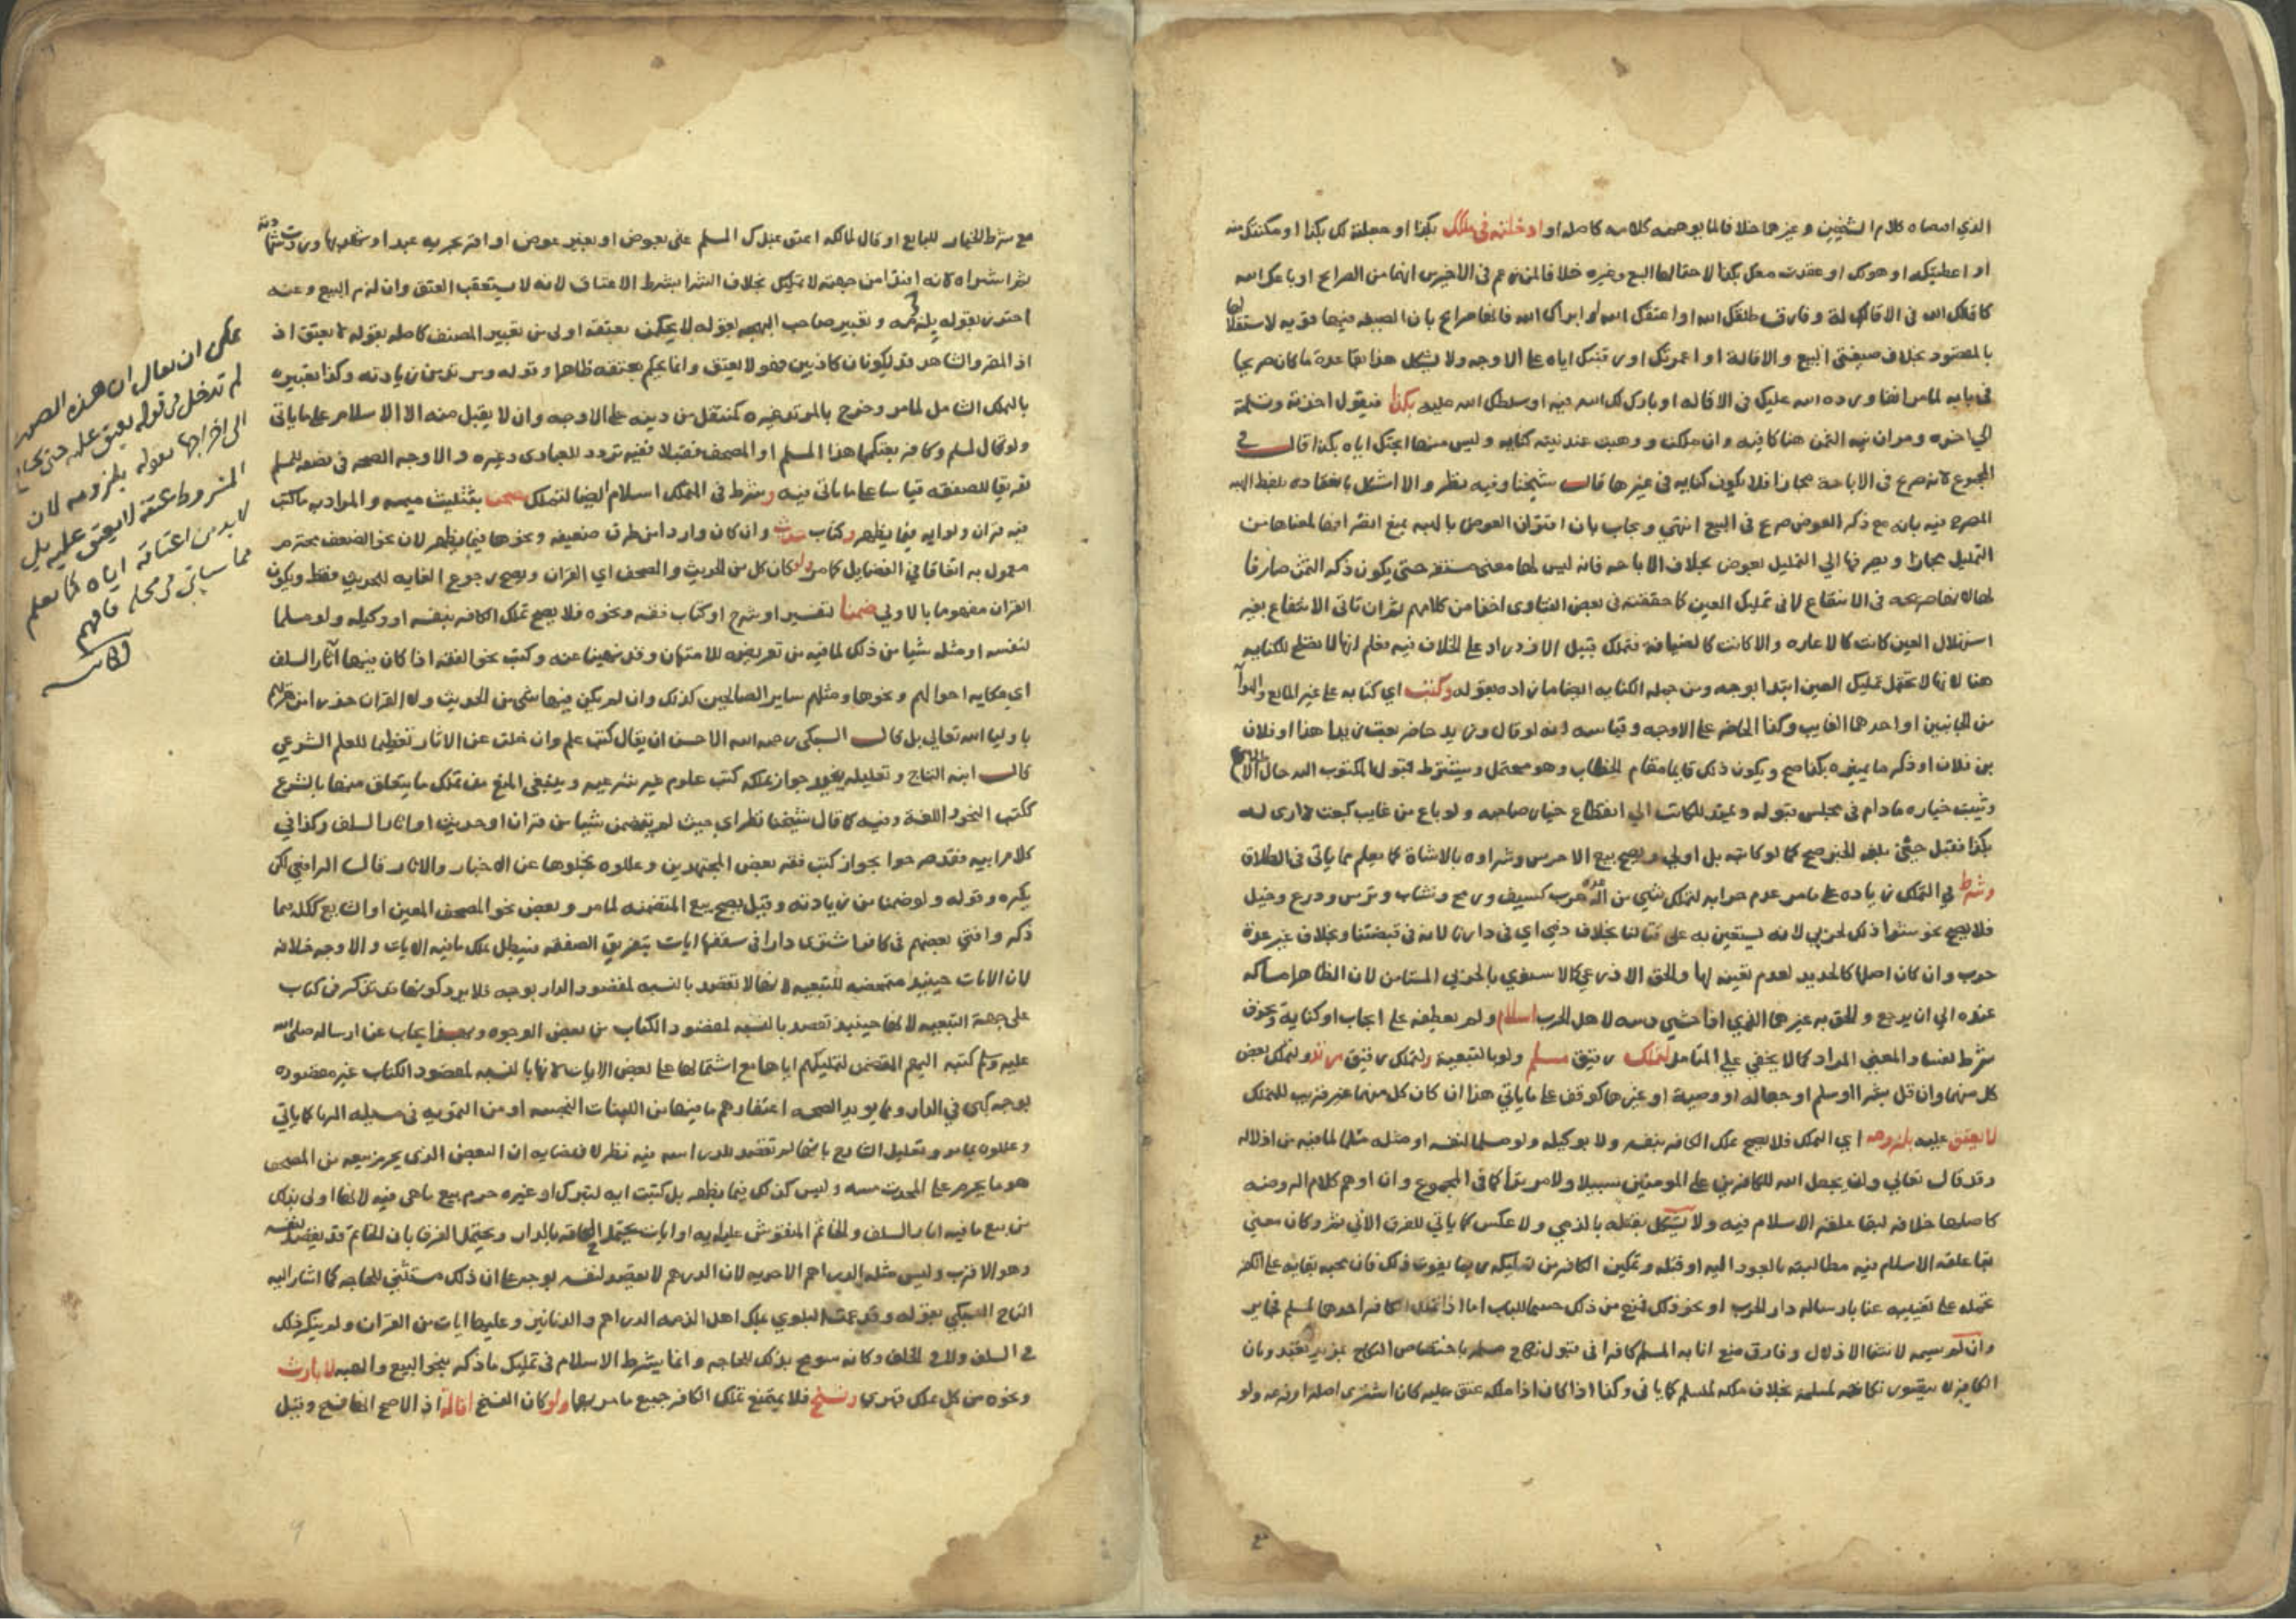 الذي اقتضاه كلام الشيخين وغيرهما خلافا لما يوهمه كلامه كاصله او ادخلته في ملكك بكذا او جعلته لك بكذا او مكنتك منه
او اعطيتكه او هو لك او عقدت معك بكذا لاحتمالها البيع وغيره خلافا لمن زعم في الاخيرين انهما من الصرائح او باعك الله
كاقالك الله في الاقالة له وفارق طلقك الله او اعتقك الله او ابراك الله فانها صرائح بان الصيغه فيها قويه لاستقلالها
بالمقصود بخلاف صيغتي البيع والاقالة او اعمرتك او رقبتك اياه على الاوجه ولا يشكل هذا بقاعدة ما كان صريحا
في بابه لما مر انفا ورده الله عليك في الاقاله او بارك لك الله فيه او سلطك الله عليه بكذا فيقول اخذته وتسلمته
الي اخره ومر ان نيه الثمن هنا كافيه وان ملكت ووهبت عند نيته كنايه وليس منها ابحتك اياه بكذا قال في
المجموع لانه صريح في الاباحة مجازا فلا يكون كنايه في غيرها قال شيخنا وفيه نظر والا اشكل بانعقاده بلفظ الهبه
المصرح فيه بانه مع ذكر العوض صريح في البيع انتهي ويجاب بان اقتران العوض بالهبه يمنع انصرافها لمعناها من
التمليك مجانا ويصرفها الي التمليك بعوض بخلاف الاباحه فانه ليس لها معنى حتى يكون ذكر الثمن صارفا
لها في الانتفاع لا في تمليك العين كما حققته في بعض الفتاوى اخذا من كلامهم ثم ان تاتى الانتفاع بغير
استهلاك العين كانت كالاعاره والا كانت كالضيافة فتملك قبيل الازدراد على الخلاف فيه فعلم انها لا تصلح للكنايه
هنا لانها لا تحتمل تمليك العين ابتدا بوجه ومن جمله الكنايه ايضا ما زاده بقوله وكتب اي كتابه على غير المائع والهوا
من الجانبين او احدهما الغايب وكذا الحاضر على الاوجه وقياسه انه لو قال وزيد حاضر بعت زيدا هذا او فلان
بن فلان او ذكر ما يميزه بكذا صح ويكون ذلك قايما مقام الخطاب وهو محتمل ويشترط قبول المكتوب اليه حال الاطلاع
ويثبت خياره ما دام في مجلس قبوله ويمتد للكاتب الي انقطاع خيار صاحبه ولو باع من غايب كبعت داري له
بكذا فقبل حين بلغه الخبر صح كما لو كاتبه بل اولي ويصح بيع الاخرس وشراوه بالاشارة كما يعلم مما ياتي في الطلاق
وشرط في التملك زياده على ما مر عدم حرابه لتملك شي من عدة حرب كسيف ورمح ونشاب وترس ودرع وخيل
فلا يصح نحو شرا ذلك لحربي لانه يستعين به على قتالنا بخلاف ذمي اي في دارنا لانه في قبضتنا وبخلاف غير عدة
حرب وان كان اصلها كالحديد لعدم تعينه لها والحق الاذرعي كالاسنوي بالحربي المستامن لان الظاهر امساكه
عنده الي ان يرجع والحق به غيرهما الذمي اذا خشي دسه لاهل الحرب اسلام ولم يعطفه على ايجاب او كناية
شرط لفسد المعني المراد كما لا يخفي علي المتامل لتملك رقيق مسلم ولو بالتبعية ولتملك رقيق مرتد ولتملك بعض
كل منهما وان قل بشرا او سلم او جعاله او وصية او غيرها كوقف على ما ياتي هذا ان كان كل منهما غير قريب للتملك
لا يعتق عليه بلزومه اي التملك فلا يصح تملك الكافر بنفسه ولا بوكيله ولو مسلما لنفسه او مثله مسلما لما فيه من اذلاله
وقد قال تعالي ولن يجعل الله للكافرين على المومنين سبيلا ولا مرتدا كما في المجموع وان اوهم كلام الروضه
كاصلها خلافه لبقا علقة الاسلام فيه ولا يشكل بقتله بالذمي ولا عكس كما ياتي للفرق الاتي ثم وكان معني
بقا علقه الاسلام فيه مطالبته بالعود اليه او قتله وتمكين الكافر من تمليكه ربما يفوت ذلك فان محبه بقايه على الكفر
تحمله على تغييبه عنا بارساله دار الحرب او نحو ذلك فمنع من ذلك حسما للباب اما اذا الكافر احدهما لمسلم فجايز
وان لم يسمه لانتفا الاذلال وفارق منع انابه المسلم كافرا في قبول نكاح مسلمه باختصاص النكاح بمزيد تعبد وبان
الكافر لا يتصور نكاحه لمسلمة بخلاف ملكه لمسلم كما ياتي وكذا اذا كان اذا ملكه عتق عليه كان اشترى اصله او فرعه ولو
مع شرط الخيار للبايع او قال لمالكه اعتق عبدك المسلم عني بعوض او بغير عوض او اقر بحريه عبد او شهد بها وردت شهادته
ثم اشتراه لانه من جهته لا تملك بخلاف الشرا بشرط الاعتاق لانه لا يستعقب العتق وان لزم البيع وعنه
احترز بقوله بلزومه وتعبير صاحب البهجه بقوله لا يحكم بعتقه اولى من تعبير المصنف كاصله بقوله لا يعتق اذ
اذ المقر والشاهد قد يكونان كاذبين فهو لا يعتق وانما يحكم بعتقه ظاهرا وقوله ومرتد من زيادته وكذا تعبيره
بالتملك الشامل لما مر وخرج بالمرتد غيره كمنتقل من دينه على الاوجه وان لا يقبل منه الا الاسلام على ما ياتي
ولو قال لمسلم وكافر بعتكما هذا المسلم او المصحف فقبلا ففيه تردد للعبادي وغيره والاوجه الصحه في نصفه للمسلم
تفريقا للصفقه قياسا على ما ياتي فيه وشرط في التملك اسلام ايضا لتملك مصحف بتثليث ميمه والمراد به ما كتب
فيه قران ولو ايه فيما يظهر وكتاب حديث وان كان وارد من طرق ضعيفه ونحوها فيما يظهر لان نحو الضعيف محترم
معمول به اتفاقا في الفضايل كما مر ولو كان كل من الحديث والمصحف اي القران ويصح رجوع الغايه للحديث فقط ويكون
القران مفهوما بالاولي ضمنا لتفسير او شرح او كتاب فقه ونحوه فلا يصح تملك الكافر بنفسه او وكيله ولو مسلما
لنفسه او مثله شيا من ذلك لما فيه من تعريضه للامتهان وقد نهينا عنه وكتب نحو الفقه اذا كان فيها آثار السلف
اي حكايه احوالهم ونحوها ومثلهم ساير الصالحين كذلك وان لم يكن فيها شي من الحديث ولا القران حذرا من
باوليا الله تعالي بل قال السبكي رحمه الله الاحسن ان يقال كتب علم وان خلت عن الاثار تعظيما للعلم الشرعي
قال ابنه التاج وتعليله يفيد جواز تملكه كتب علوم غير شرعيه وينبغي المنع من تملك ما يتعلق منها بالشرع
ككتب النحو واللغة وفيه كما قال شيخنا نظر اي حيث لم يتضمن شيا من قران او حديث او اثار السلف وكذا في
كلام ابيه فقد صرحوا بجواز كتب فقه بعض المجتهدين وعللوه بخلوها عن الاخبار والاثار قال الرافعي لكن
يكره وقوله ولو ضمنا من زيادته وقيل يصح بيع المتضمنه لما مر وبعض نحو المصحف المعين او الشايع ككله فيما
ذكر وافتي بعضهم في كافر اشترى دارا في سقفها ايات بتفريق الصفقه فيبطل فيما فيه الايات والاوجه خلافه
لان الايات حينيذ متمحضه للتبعيه لانها لا تقصد بالنسبه لمقصود الدار بوجه فلا يرد كونها ذكر في كتاب
على جهة التبعيه لانها حينيذ تقصد بالنسبه لمقصود الكتاب من بعض الوجوه وبهذا يجاب عن ارساله صلى الله
عليه وسلم كتبه اليهم المقتضي لتمليكهم اياها مع اشتمالها على بعض الايات لانها بالنسبه لمقصود الكتاب غير مقصوده
بوجه كهى في الدار ومما يويد الصحه اعتقادهم ما فيها من اللبنات النجسه او من التمويه في مسيله الربا كما ياتي
وعللوه بما مر وتعليل الشارح بانها لم تقصد للدراسه فيه نظر لاقتضايه ان البعض الذي يحرم بيعه من المصحف
هو ما يحرم على المحدث مسه وليس كذلك فيما يظهر بل لو كتبت ايه لتبرك او غيره حرم بيع ما هي فيه لانها اولى بذلك
من بيع ما فيه اثار السلف والخاتم المنقوش عليه ايه او ايات يحتمل الحاقه بالدار ويحتمل الفرق بان الخاتم قد يقصد لنفسه
وهو الاقرب وليس مثله الدراهم الاحديه لان الدرهم لا يقصد لنفسه بوجه على ان ذلك مستثني للحاجه كما اشار اليه
التاج السبكي بقوله وقد عمت البلوي بملك اهل الذمه الدراهم والدنانير وعليها ايات من القران ولم ينكر ذلك
في السلف ولا في الخلف وكانه سومح بذلك للحاجه وانما يشرط الاسلام في تمليك ما ذكر بنحو البيع والهبه لا بارث
ونحوه من كل ملك قهري وفسخ فلا يمتنع تملك الكافر جميع ما مر بهما ولو كان الفسخ اقالة اذ الاصح انها فسخ وقيل
يمكن ان يقال ان هذه الصور
لم تدخل في قوله يعتق عليه حتى يحتاج
الى اخراجها بقوله بلزومه لان
المشروط عتقه لا يعتق عليه بل
لا بد من اعتاقه اياه كما يعلم
مما سياتي في محله فافهم